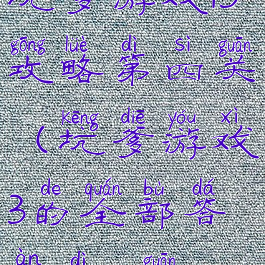 gōng lüè dì sì guān
攻略第四关
kēng diē yóu xì
(坑爹游戏
de quán bù dá
3的全部答
àn dì guān